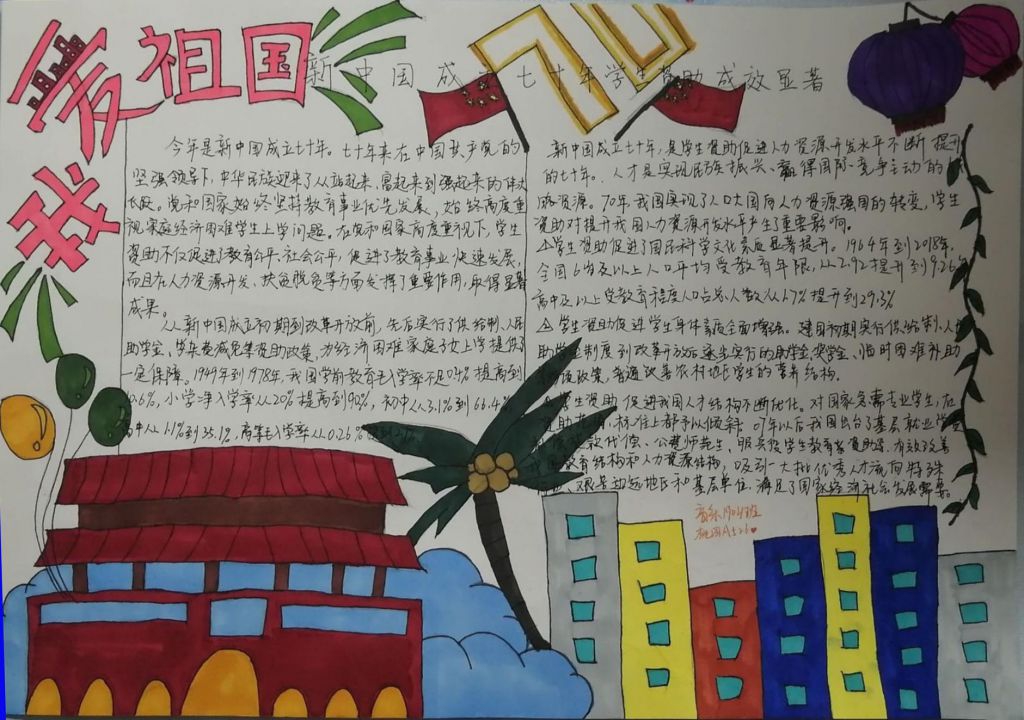 我爱祖国
新中国成立七十年学生资助成效显著
今年是新中国成立七十年。七十年来在中国共产党的
坚强领导下,中华民族迎来了从站起来、富起来到强起来的伟大
飞跃。党和国家始终坚持教育事业优先发展,始终高度重
视家庭经济困难学生上学问题。在党和国家高度重视下,学生
资助不仅促进了教育公平、社会公平,促进了教育事业快速发展,
而且在人力资源开发、扶贫脱贫等方面发挥了重要作用,取得显著
成果。
从新中国成立初期到改革开放前,先后实行了供给制、人民
助学金、学杂费减免等资助政策,为经济困难家庭子女上学提供了
一定保障。1949年到1978年,我国学前教育毛入学率不足0.4%提高到
10.6%,小学净入学率从20%提高到90%,初中从3.1%到66.4%,
高中从1.1%到35.1%,高等毛入学率从0.26%
新中国成立七十年,是学生资助促进人力资源开发水平不断提升
的七十年。人才是实现民族振兴、赢得国际竞争主动的
略资源。70年我国实现了人口大国向人力资源强国的转变,学生
资助对提升我国人力资源开发水平产生了重要影响。
△学生资助促进了国民科学文化素质显著提升。1964年到2018年,
全国6岁及以上人口平均受教育年限,从2.92提升到9.26年
高中及以上受教育程度人口占总人数从1.7%提升到29.3%
△学生资助促进学生身体素质全面增强。建国初期实行供给制、人
助学金制度到改革开放后逐步实行的助学金、奖学金、临时困难补助
政策,普遍改善农村地区学生的营养结构。
学生资助促进我国人才结构不断优化。对国家急需专业学生,在
资助范围、标准上都予以倾斜 07年以后我国出台了基层就业学
贷款代偿、公费师范生、服兵役学生教育资助等,有效改善
教育结构和人力资源结构,吸引一大批优秀人才流向特殊
艰苦边远地区和基层单位,满足了国家经济社会发展需要。